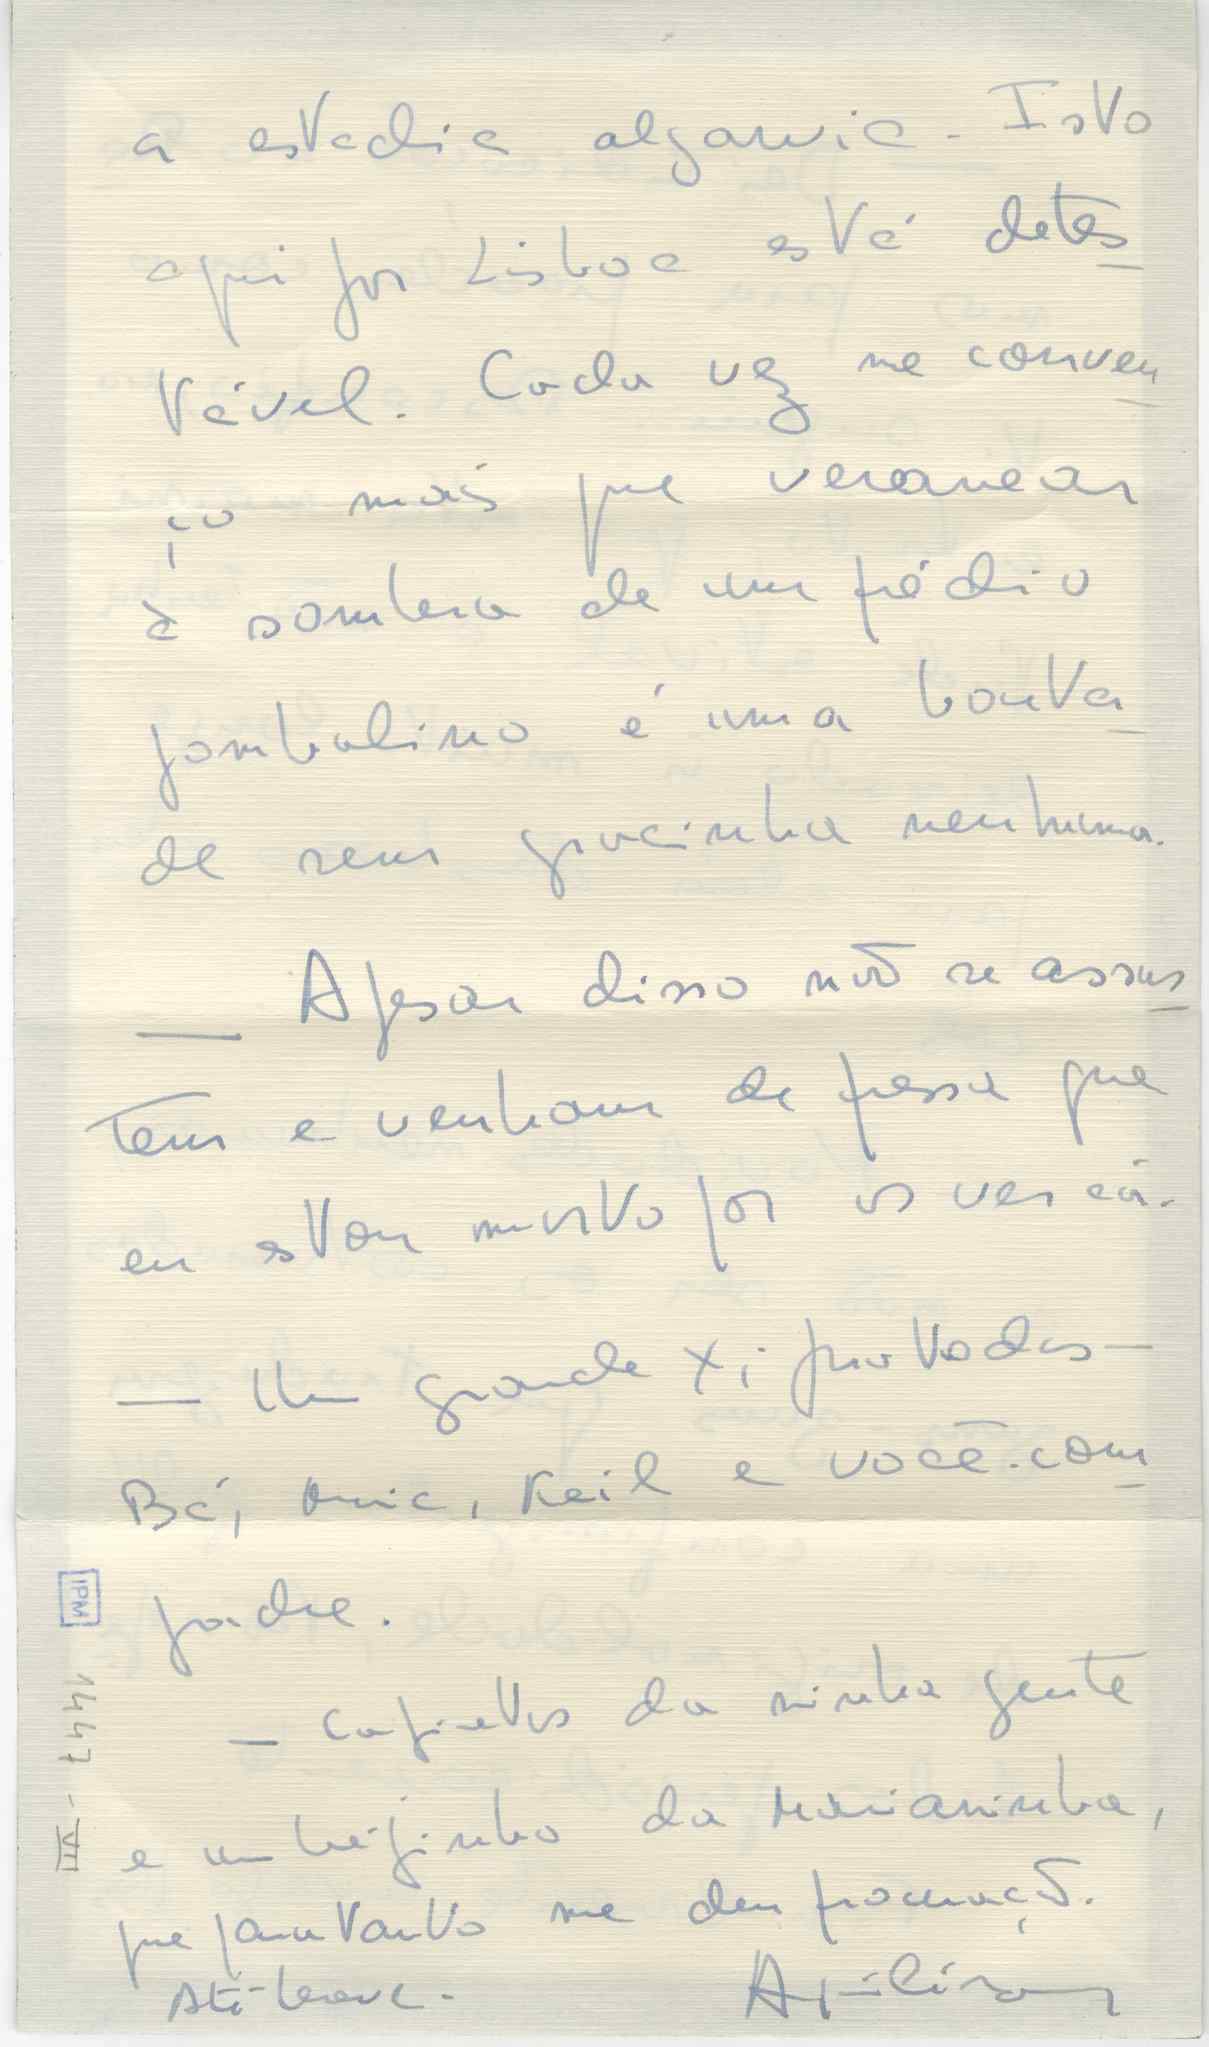 a estadia algarvia - Isto
aqui por Lisboa está detes
tável. Cada vez me conven
ço mais que veranear
à sombra de um prédio
pombalino é uma bonta
de sem gracinha nenhuma.
— Apesar disso não se assus
tem e venham depressa que
eu estou morto por os ver cá.
— Um grande xi pra todos —
Bá, Keil e você com
padre.
— Capiattos da minha gente
e um beijinho da Marianinha,
que para tanto me deu procuração.
Até breve -
IPM
1447-VII